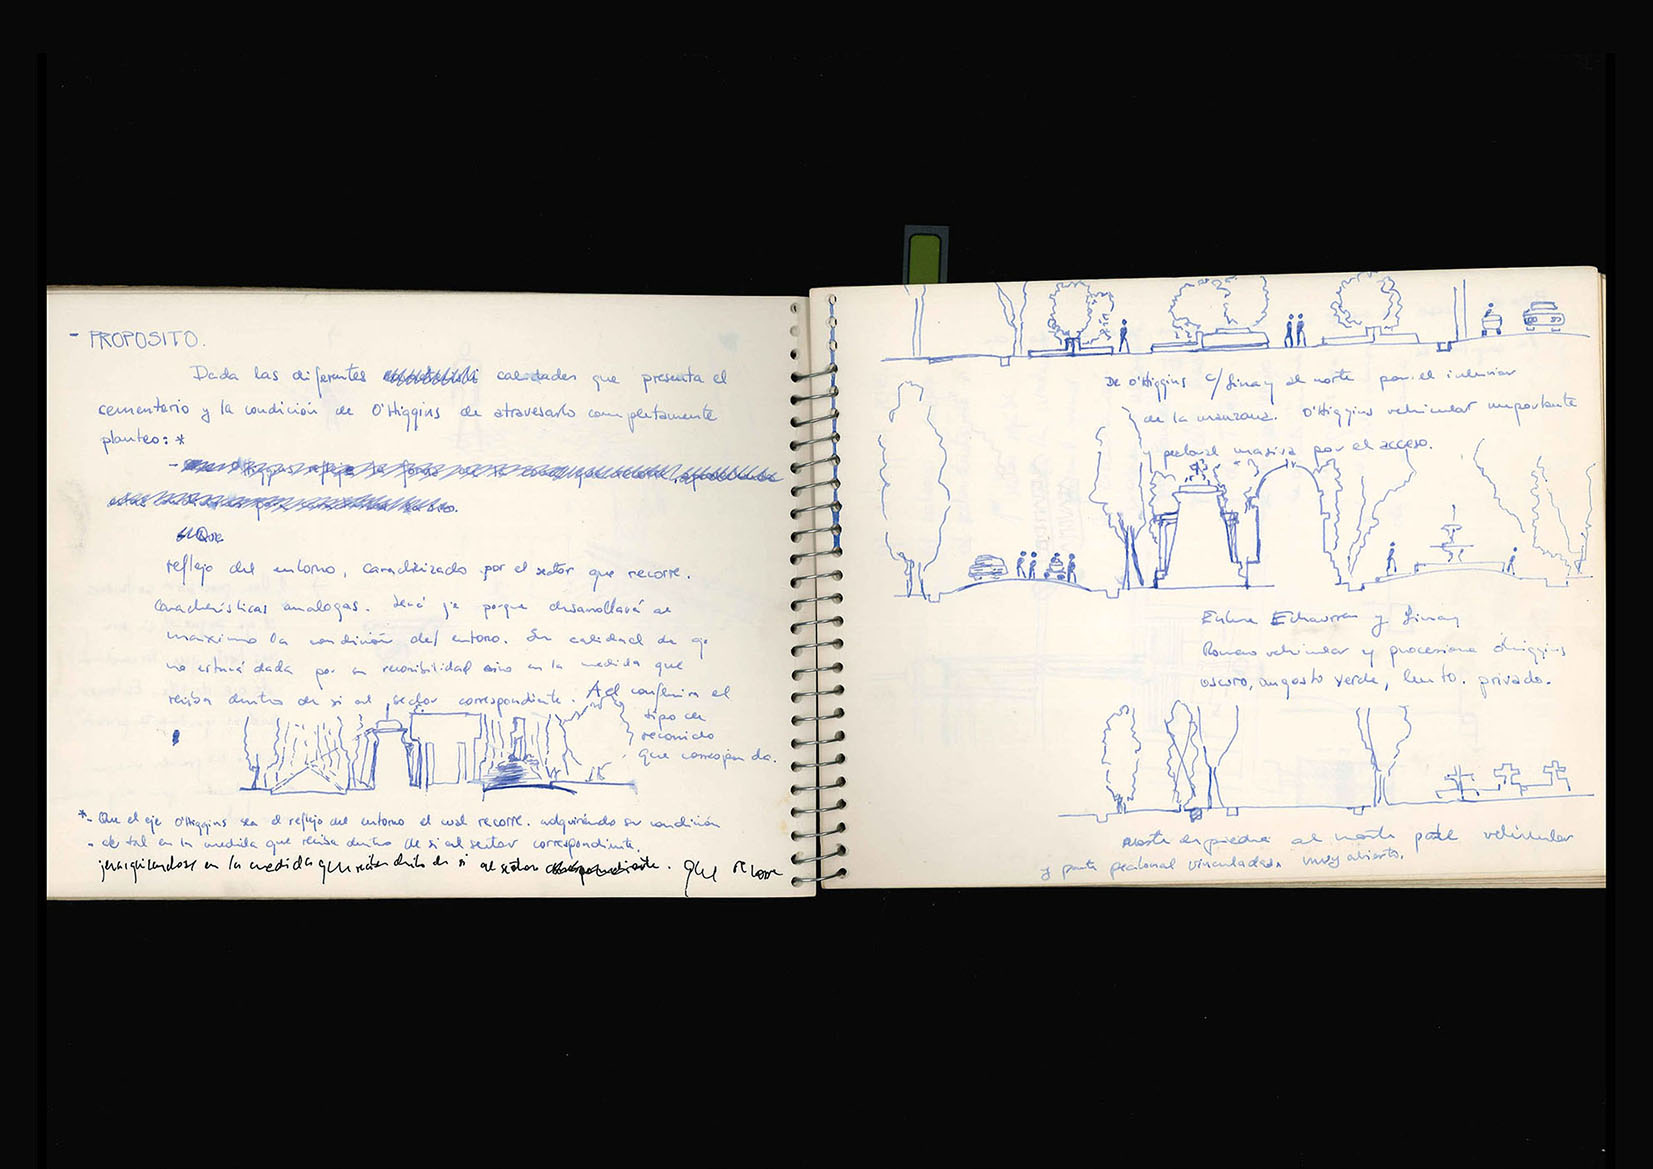 - PROPOSITO.
Dada las diferentes calidades que presenta el
cementerio y la condición de O'Higgins de atravesarlo completamente
planteo: *
Que
reflejo del entorno, caracterizado por el sector que recorre.
Características analogas. Será eje porque desarrollará al
maximo la condición del entorno. Su calidad de eje
no estará dada por su reconibilidad sino en la medida que
reciba dentro de si al sector correspondiente. Así confirira el
tipo de
recorrido
que corresponda.
*- Que el eje O'Higgins sea el reflejo del entorno el cual recorre. adquiriendo su condición
- de tal en la medida que reciba dentro de si al sector correspondiente.
jerarquizandose en la medida que reciba dentro de si al sector. Que recorre
De O'Higgins c/ Limay al norte por el interior
de la manzana. O'Higgins vehicular importante
y peatonal masiva por el acceso.
Entre Echaurren y Limay
vehicular y O'Higgins
oscuro, angosto verde, lento. privado.
en piedra al norte vehicular
y peatonal vinculadas muy abierto.